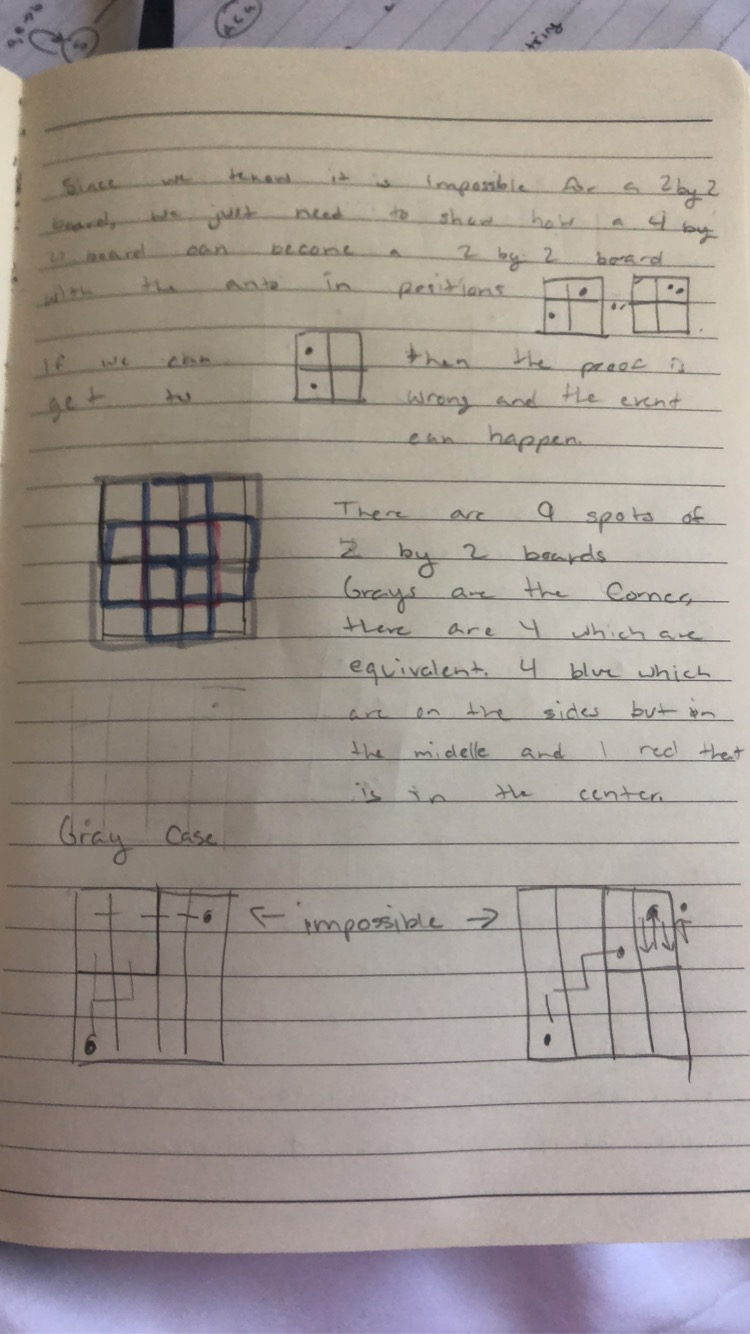 Since we know it is impossible for a 2 by 2
board, we just need to show how a 4 by
4 board can become a 2 by 2 board
with the ants in positions
If we can then the proof is
get to wrong and the event
can happen.
There are 9 spots of
2 by 2 boards
Grays are the Corner,
there are 4 which are
equivalent. 4 blue which
are on the sides but in
the midelle and 1 red that
is in the center.
Gray Case
← impossible →